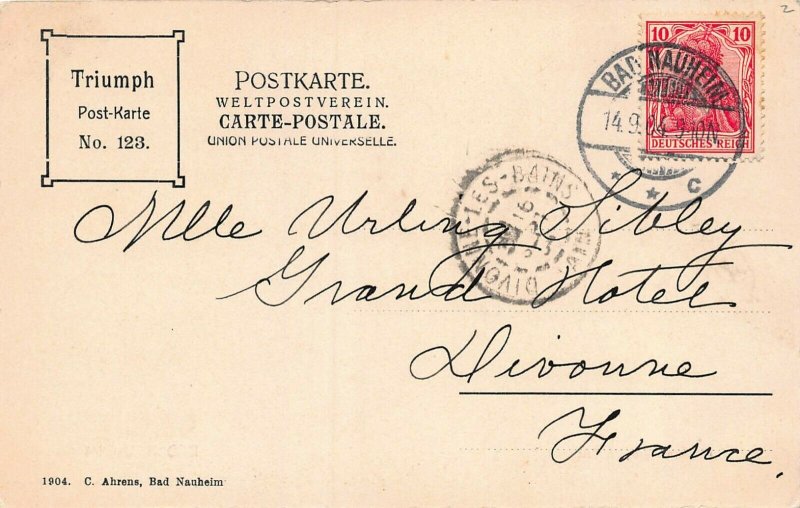 2
Triumph
Post-Karte
No. 123.
POSTKARTE.
WELTPOSTVEREIN.
CARTE-POSTALE.
UNION POSTALE UNIVERSELLE.
10 10
DEUTSCHES REICH
BAD NAUHEIM
14.9.04
* * C
DIVONNE-LES-BAINS
AIN
16
Mlle Urling Sibley
Grand Hotel
Divonne
France.
1904. C. Ahrens, Bad Nauheim